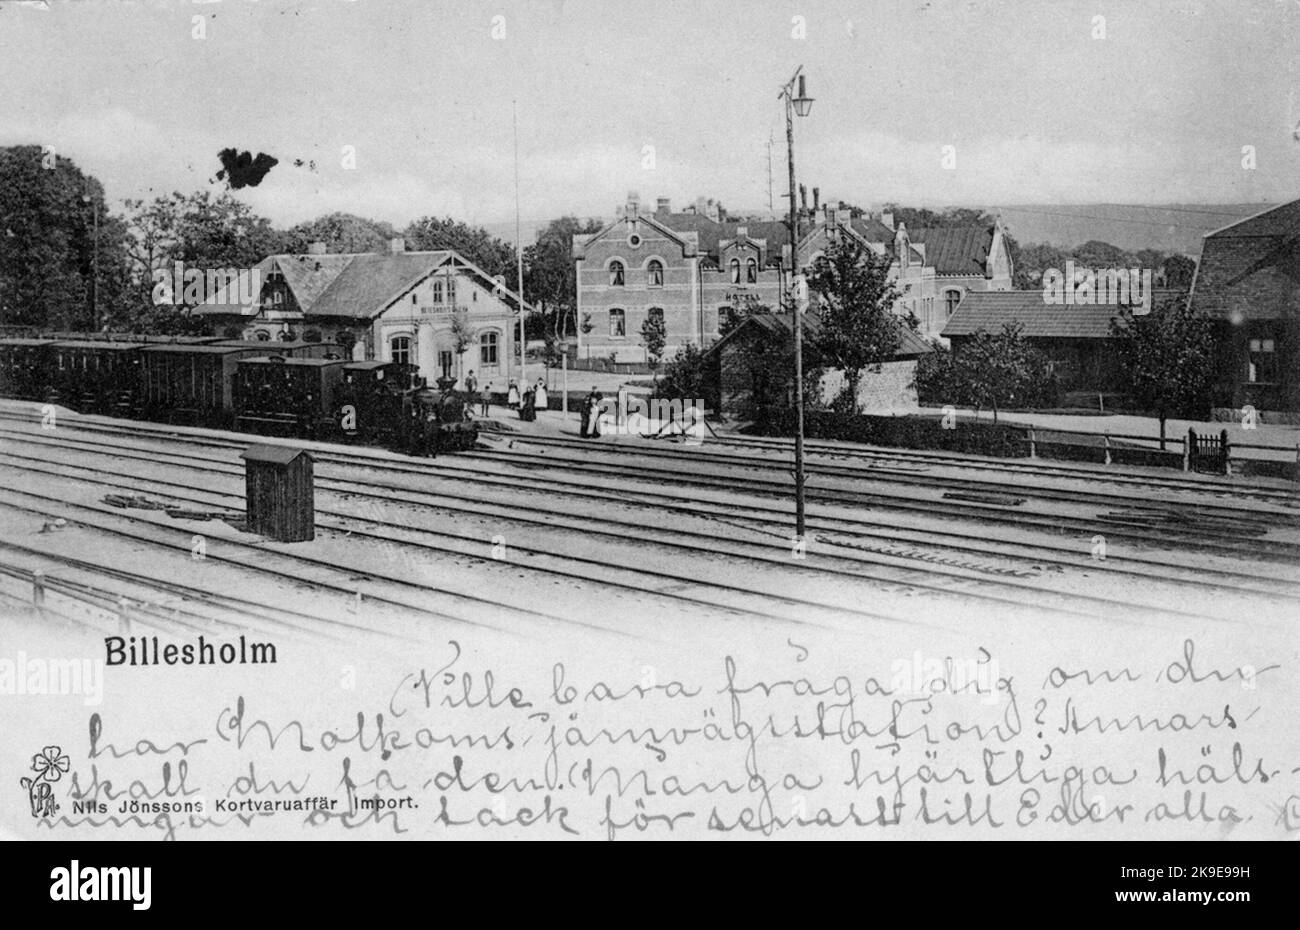 BILLESHOLM
HOTELL
Billesholm
Ville bara fråga dig om du
har Molkoms-järnvägsstation? Annars
skall du få den. Många hjärtliga häls-
ningar och tack för senast till Eder alla.
V.P.A.
Nils Jönssons Kortvaruaffär Import.
a alamy
alamy
Image ID: 2K9E99H
www.alamy.com